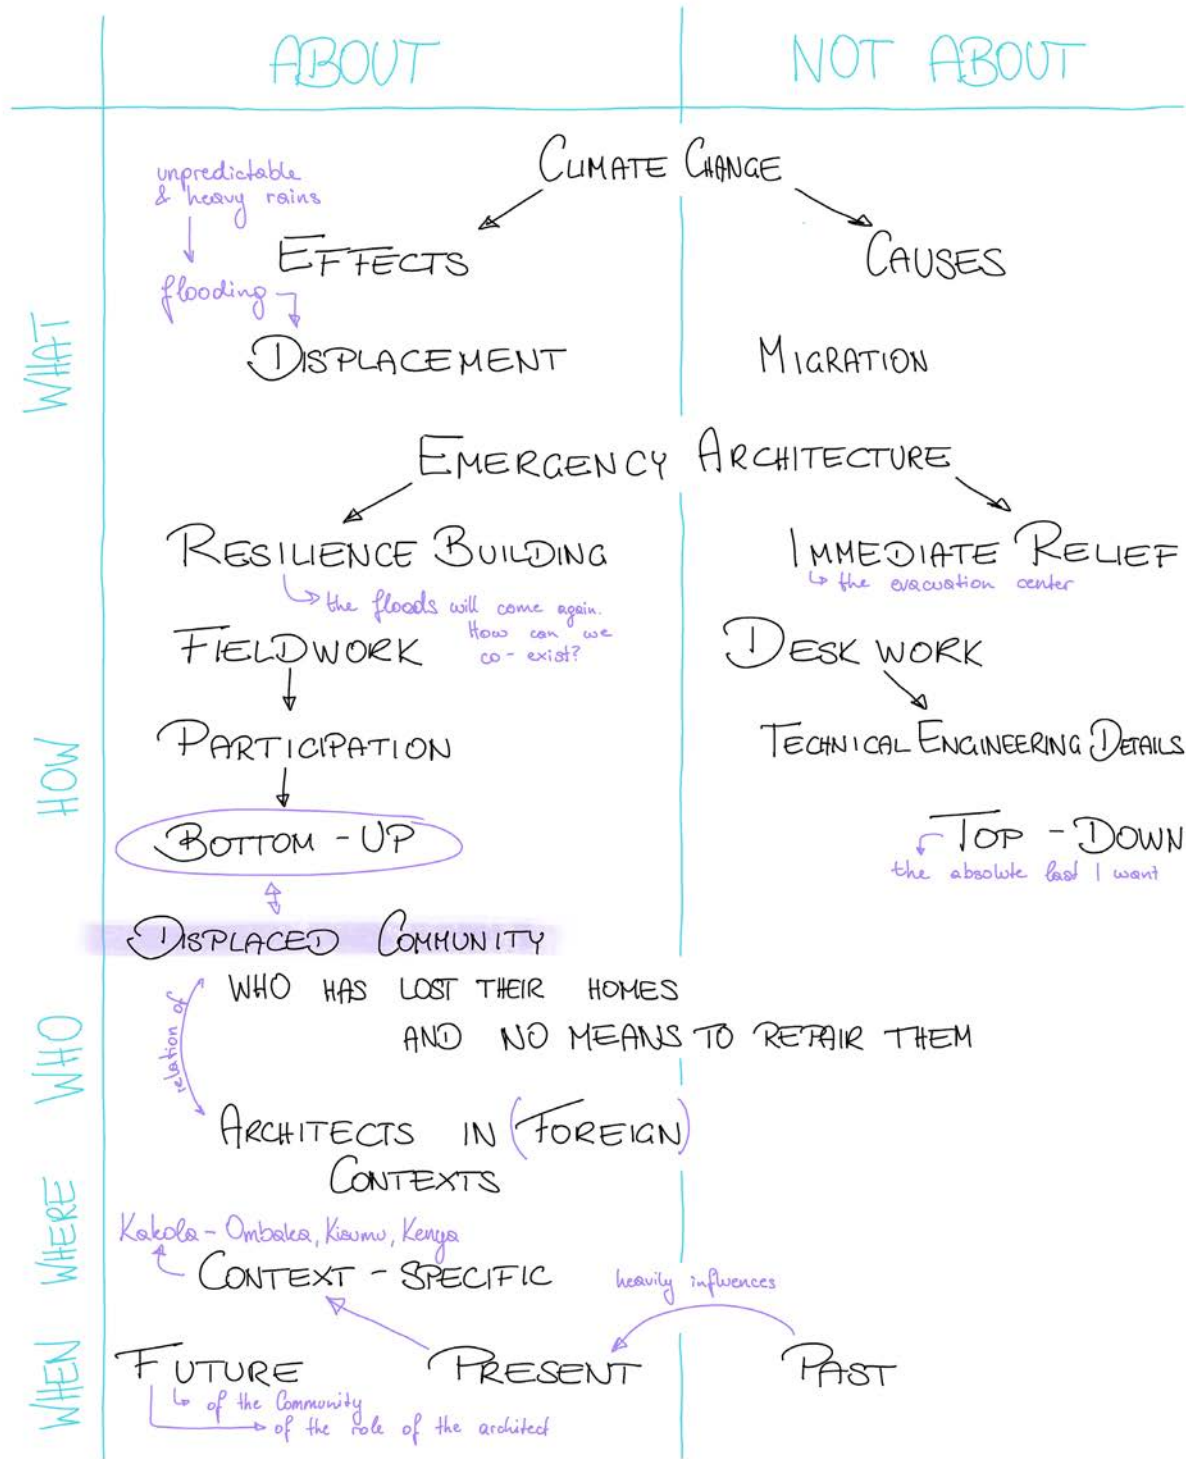 ABOUT
NOT ABOUT
WHAT
CLIMATE CHANGE
unpredictable
& heavy rains
EFFECTS
CAUSES
flooding
DISPLACEMENT
MIGRATION
EMERGENCY ARCHITECTURE
RESILIENCE BUILDING
IMMEDIATE RELIEF
the evacuation center
the floods will come again.
How can we
co-exist?
HOW
FIELDWORK
DESK WORK
PARTICIPATION
TECHNICAL ENGINEERING DETAILS
BOTTOM-UP
TOP-DOWN
the absolute last I want
WHO
DISPLACED COMMUNITY
WHO HAS LOST THEIR HOMES
AND NO MEANS TO REPAIR THEM
relation of
ARCHITECTS IN (FOREIGN)
CONTEXTS
WHERE
Kakola-Ombaka, Kisumu, Kenya
CONTEXT-SPECIFIC
heavily influences
WHEN
FUTURE
PRESENT
PAST
of the Community
of the role of the architect